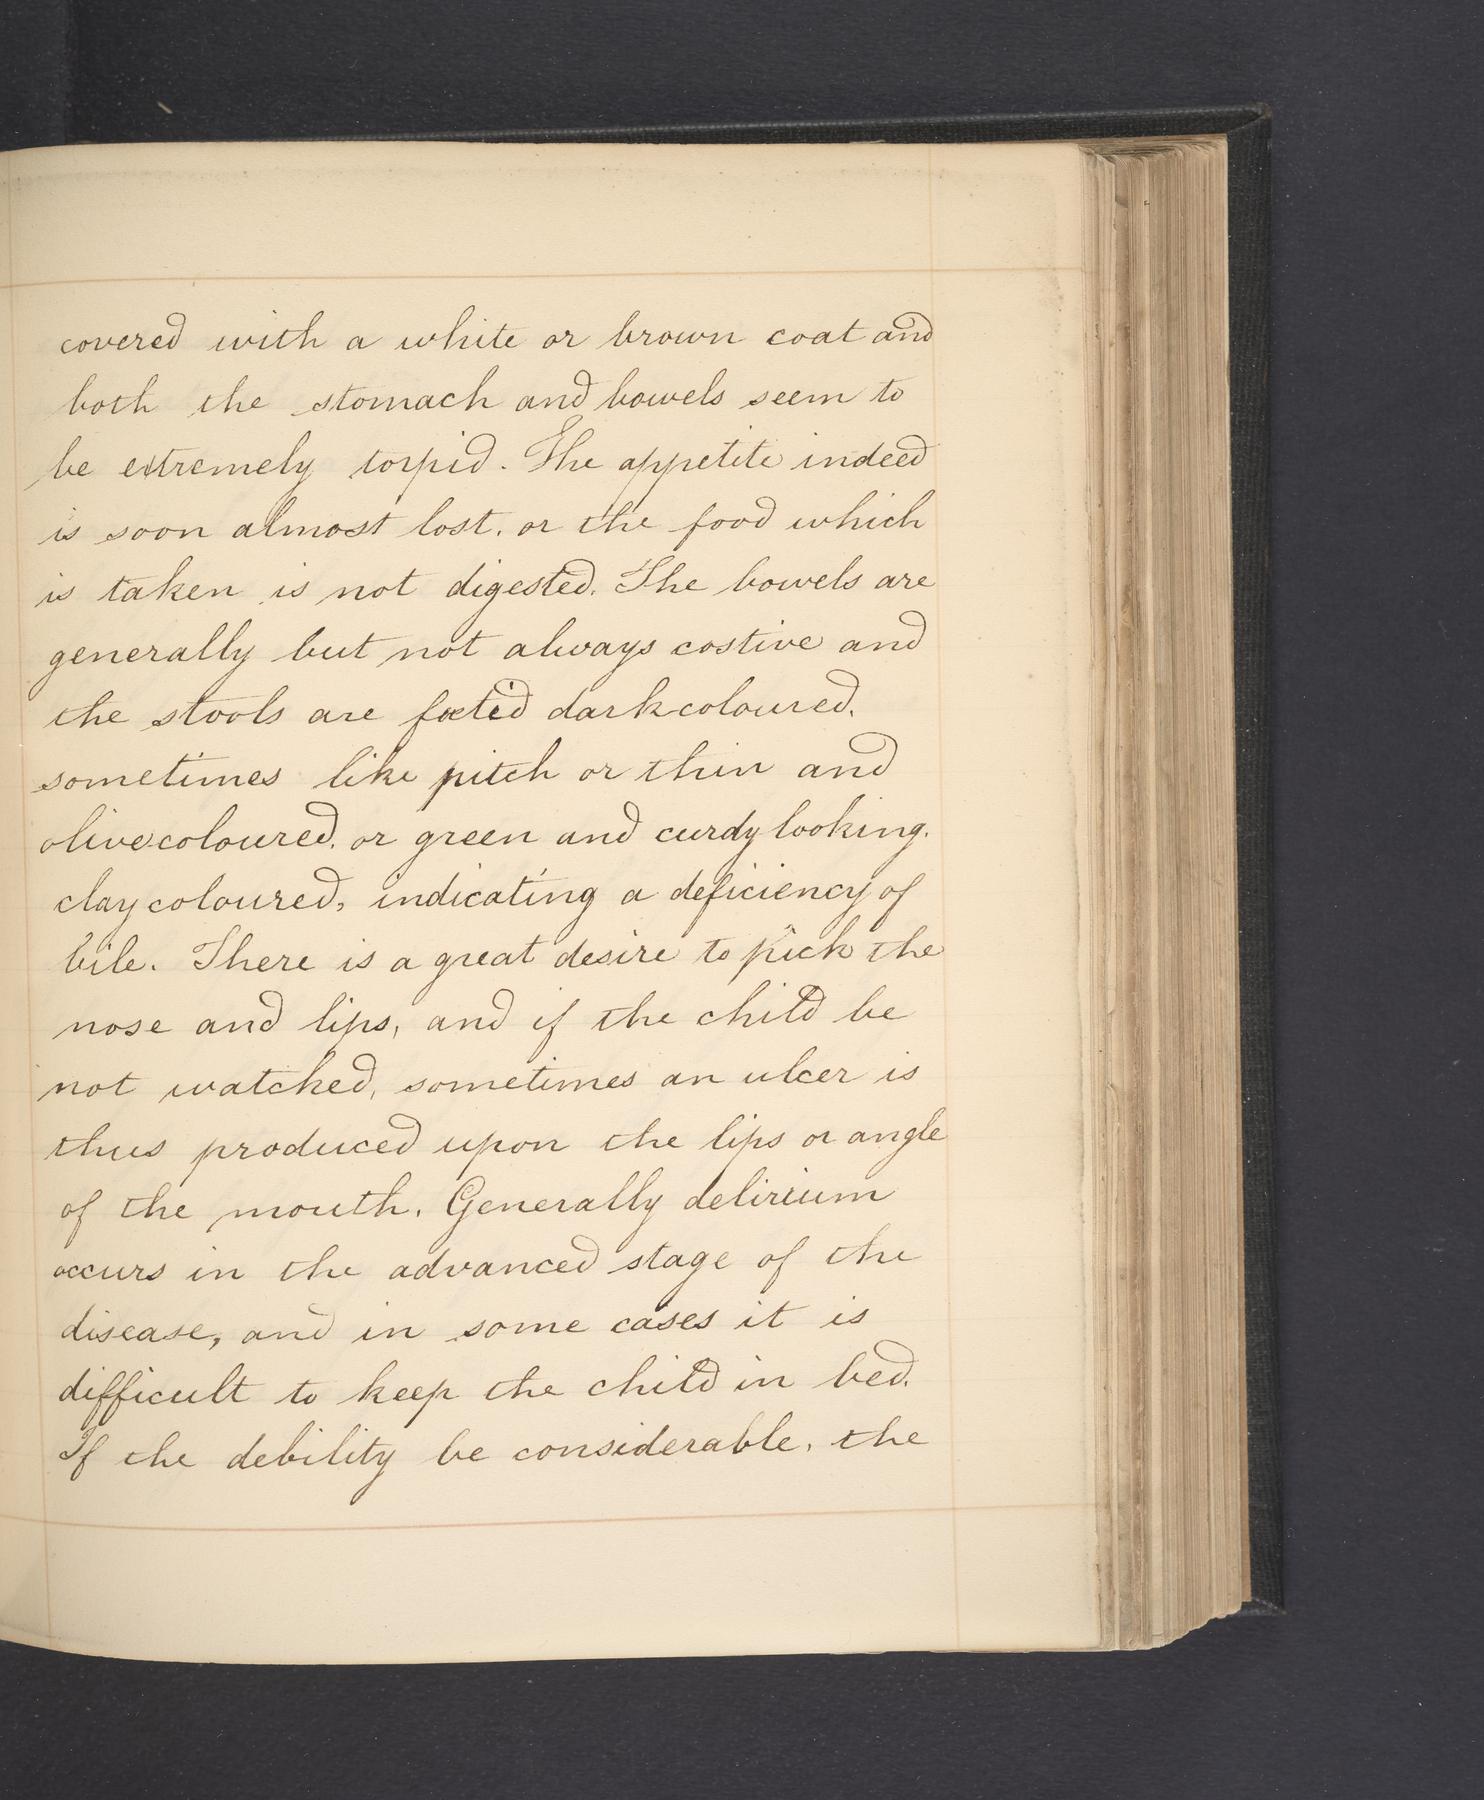 covered with a white or brown coat and
both the stomach and bowels seem to
be extremely torpid. The appetite indeed
is soon almost lost, or the food which
is taken is not digested. The bowels are
generally but not always costive and
the stools are fœtid darkcoloured,
sometimes like pitch or thin and
olivecoloured, or green and curdy looking,
clay coloured, indicating a deficiency of
bile. There is a great desire to pick the
nose and lips, and if the child be
not watched, sometimes an ulcer is
thus produced upon the lips or angle
of the mouth. Generally delirium
occurs in the advanced stage of the
disease, and in some cases it is
difficult to keep the child in bed.
If the debility be considerable, the